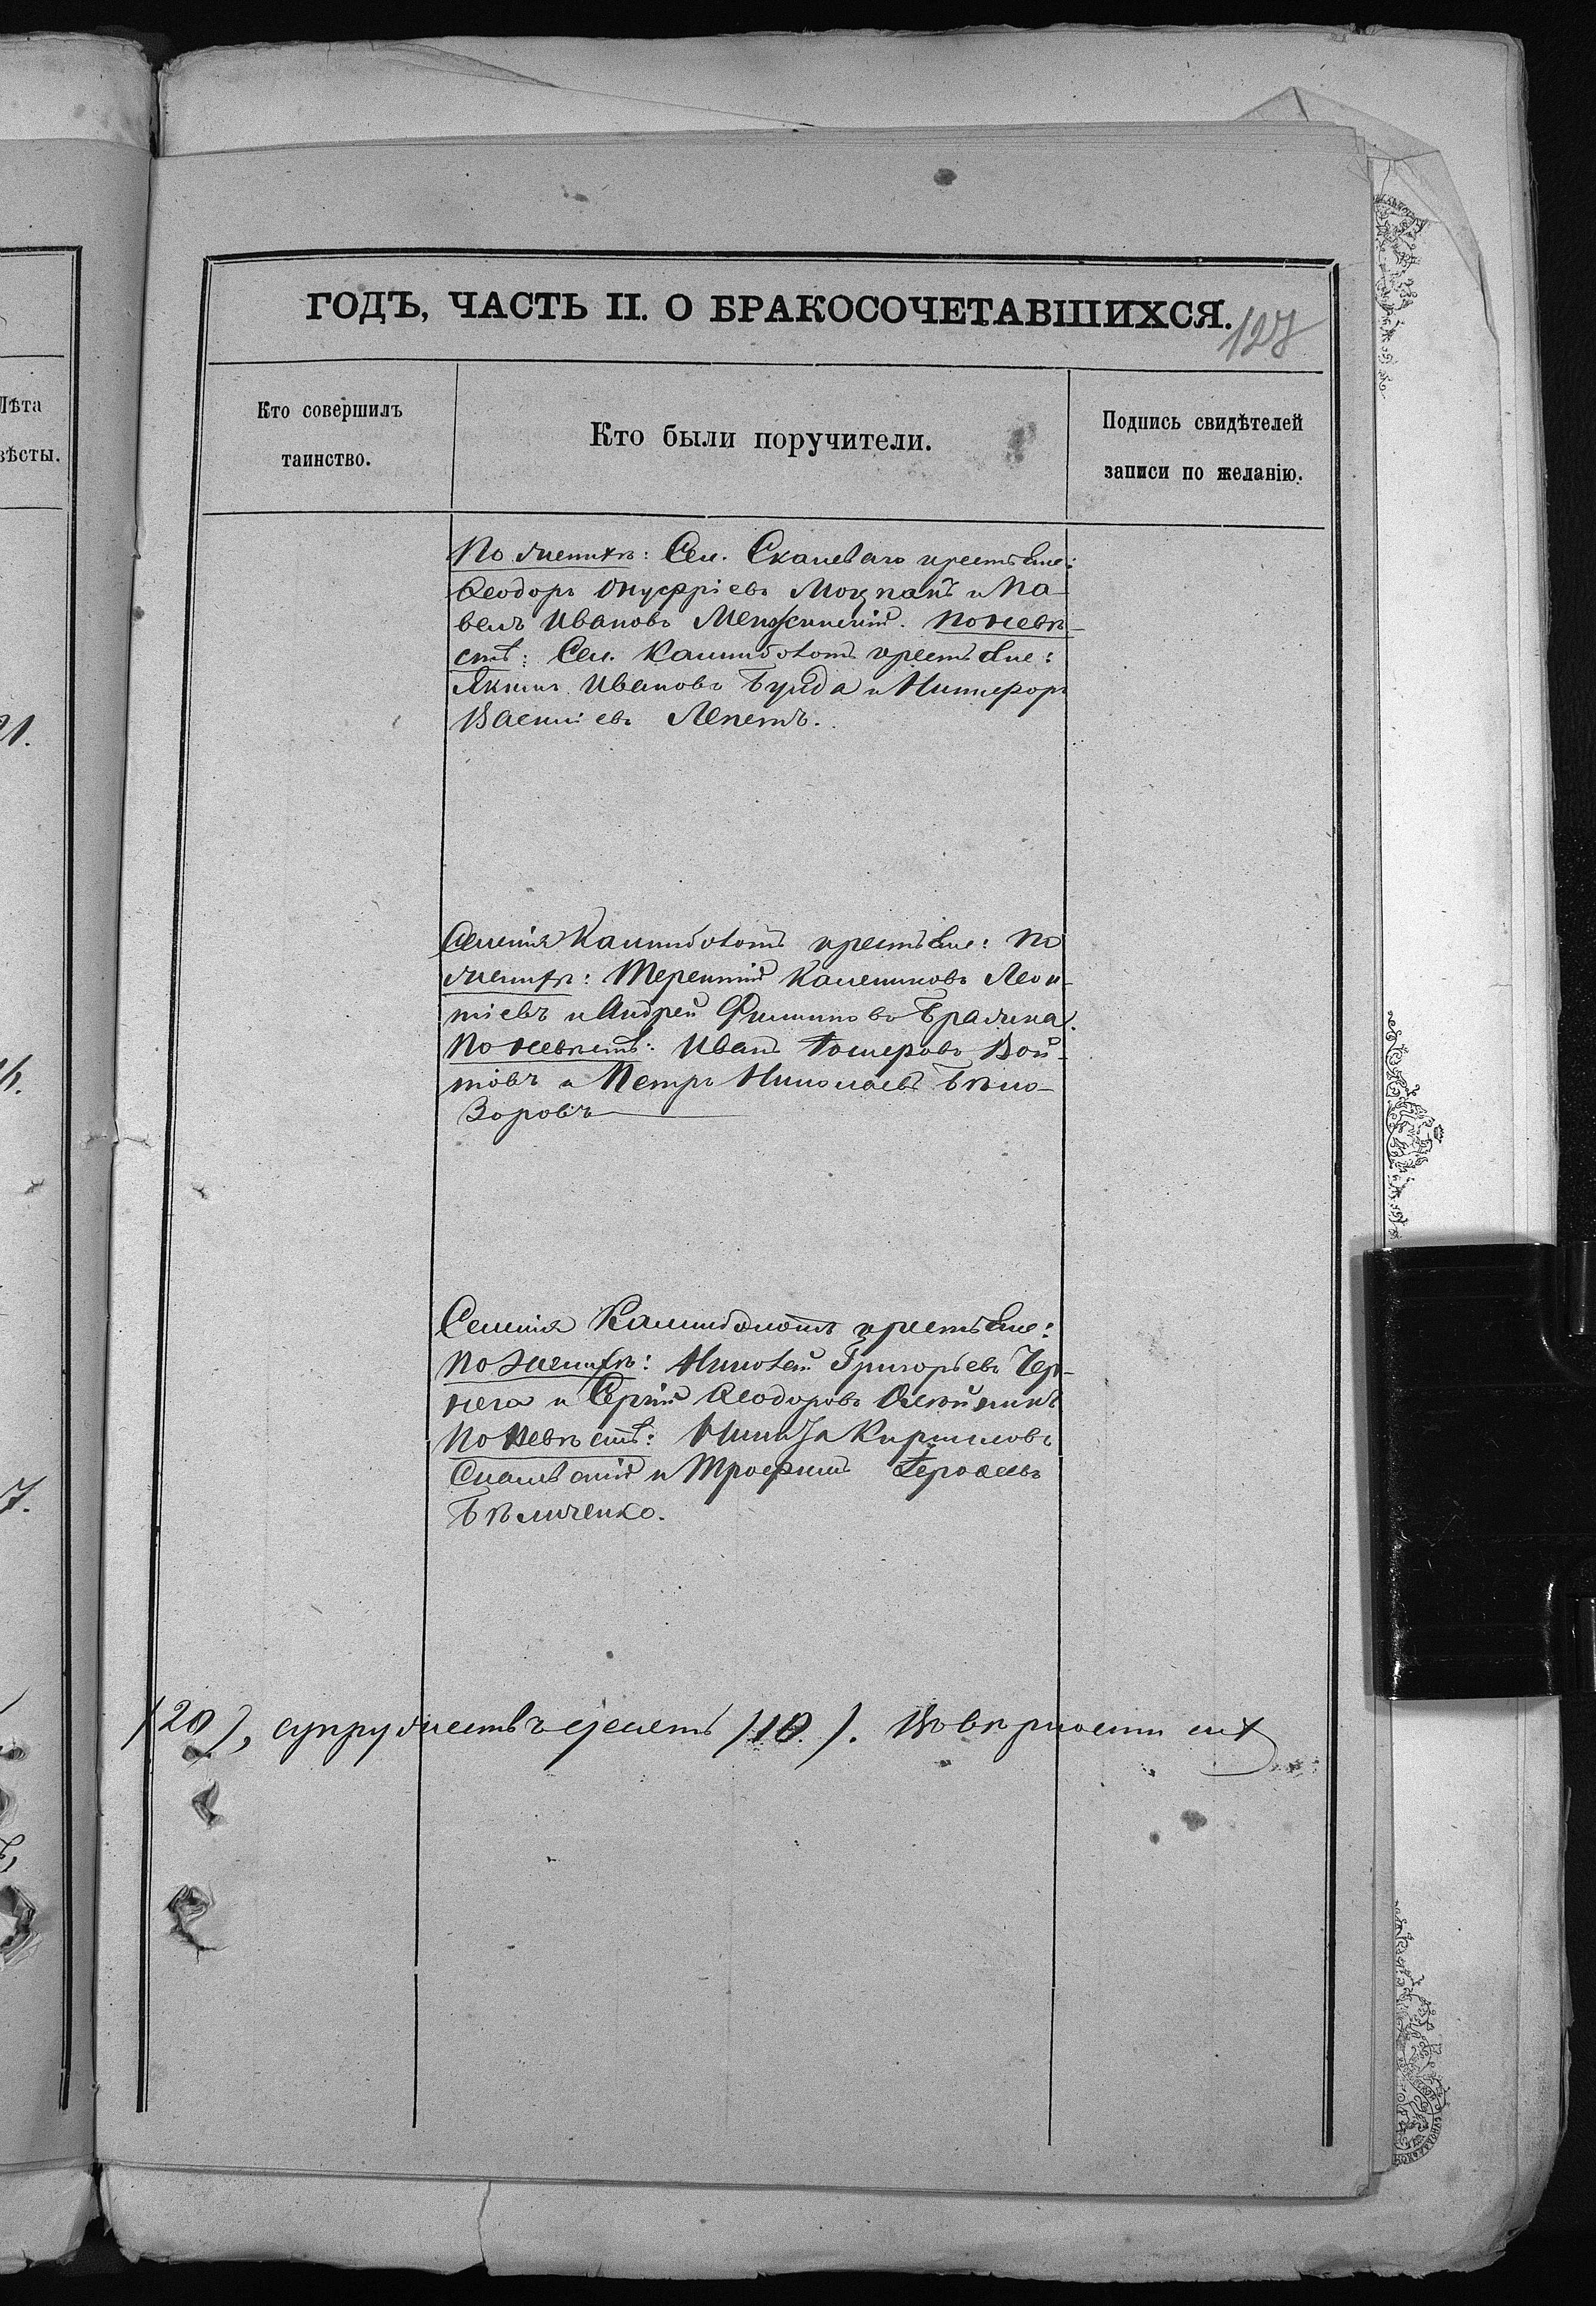 ГОДЪ, ЧАСТЬ II. О БРАКОСОЧЕТАВШИХСЯ.
127
Лѣта
вѣсты.
Кто совершилъ
таинство.
Кто были поручители.
Подпись свидѣтелей
записи по желанію.
По женихѣ: Сел. Скалеваго крестьяне:
Ѳеодоръ Онуфріевъ Моцпанъ и Па-
велъ Ивановъ Менжинскій. По невѣ-
стѣ: Сел. Калниболотъ крестьяне:
Якимъ Ивановъ Бурда и Никифоръ
Василіевъ Лепетъ.
21.
Селенія Калниболотъ крестьяне: По
женихѣ: Терентій Калениковъ Леон-
тіевъ и Андрей Филиповъ Бражка.
По невѣстѣ: Иванъ Вой-
товъ и Петръ Николаевъ Бѣло-
зоровъ
Селенія Калниболотъ крестьяне:
По женихѣ: Николай Григорьевъ Чер-
нега и Сергій Ѳеодоровъ Олейникъ
По невѣстѣ: Никита Кириловъ
Скалевскій и Трофимъ
Бѣличенко.
7.
(20), супружествъ десять (10). Вовѣрности сихъ